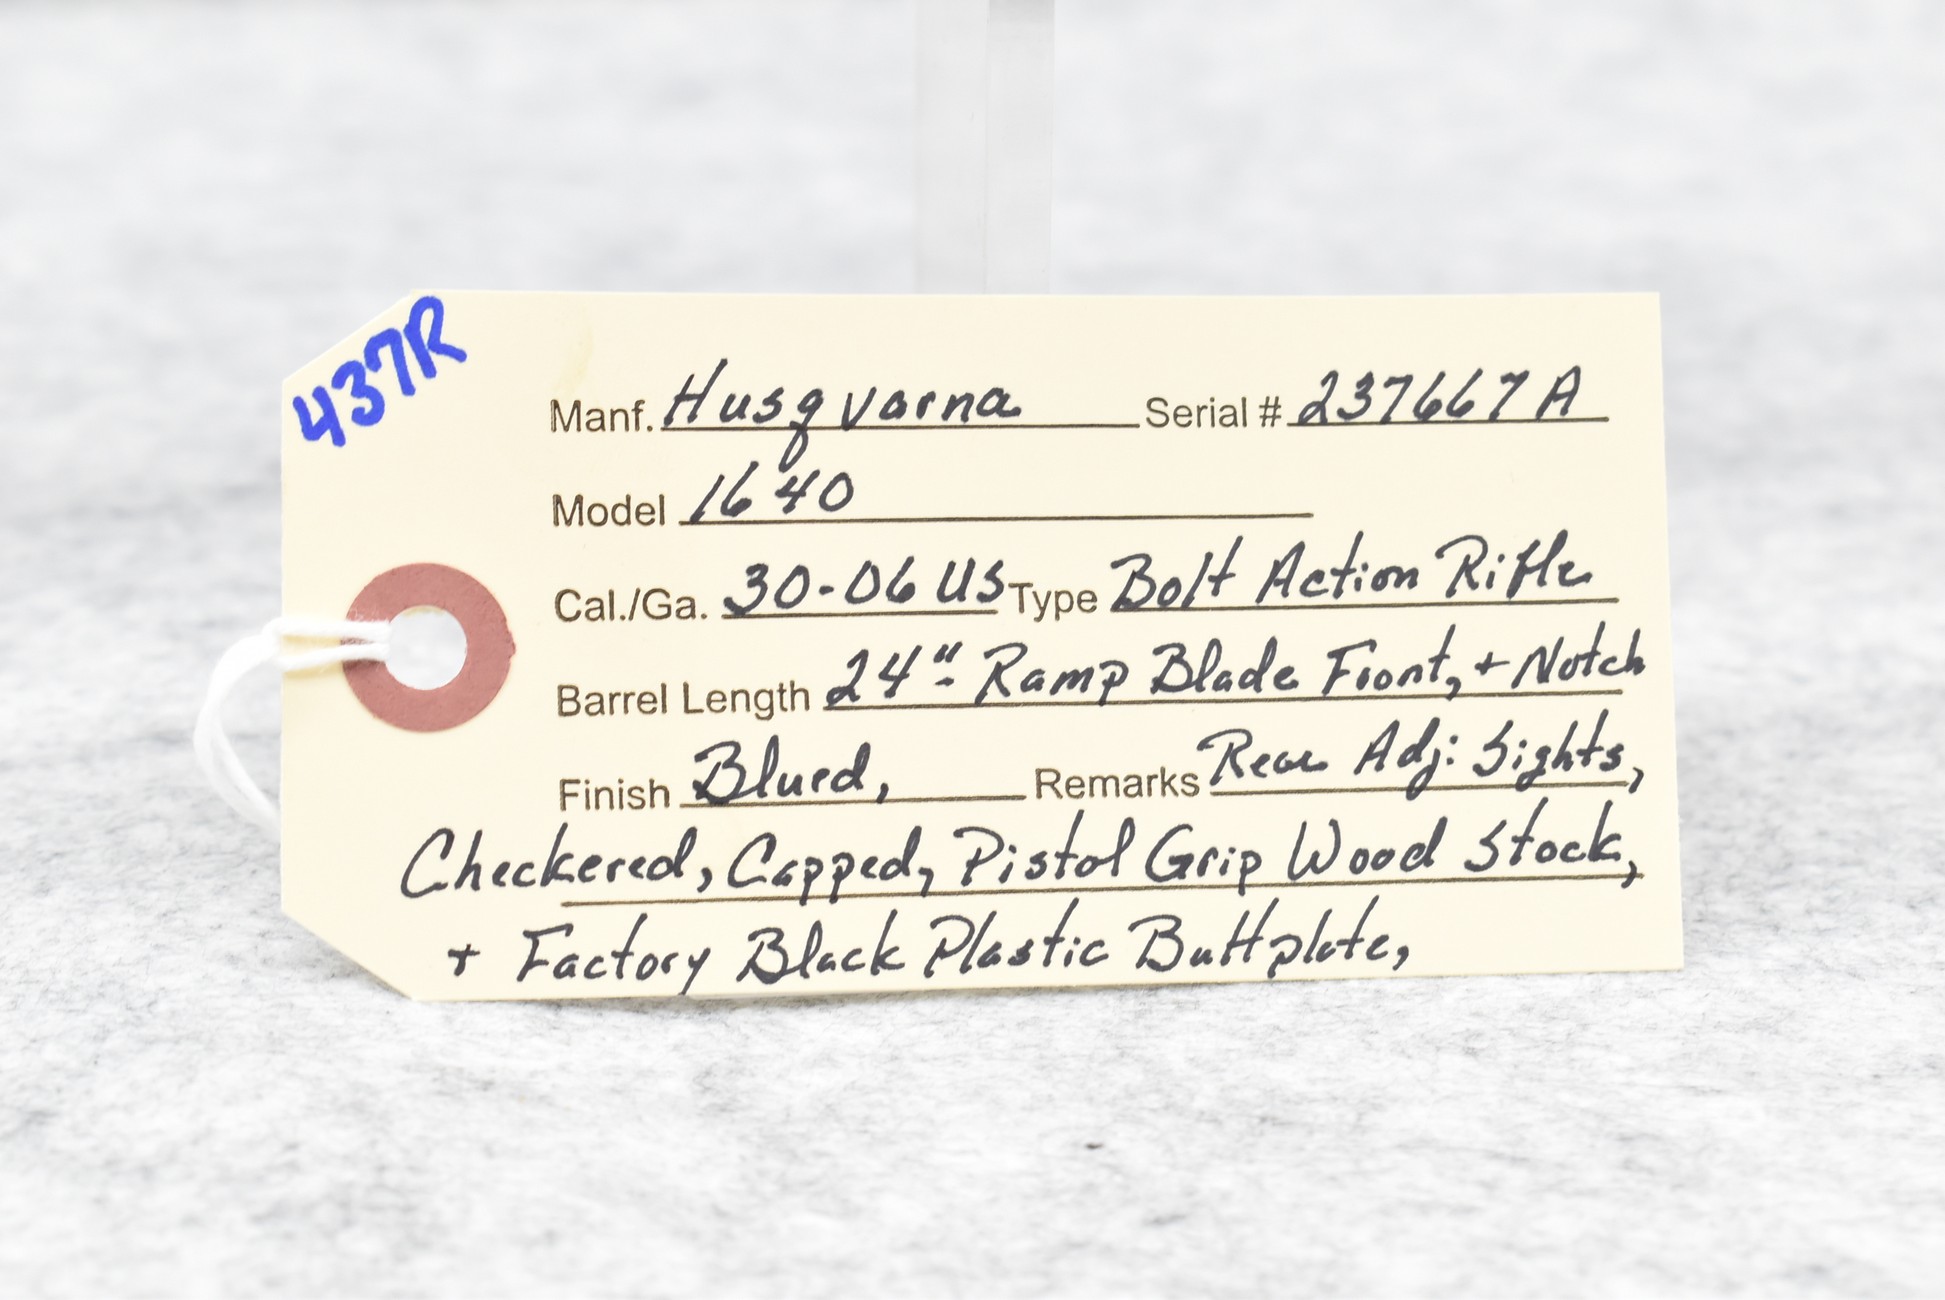 437R
Manf. Husqvarna Serial # 237667A
Model 1640
Cal./Ga. 30-06 US Type Bolt Action Rifle
Barrel Length 24"- Ramp Blade Front, + Notch
Finish Blued, Remarks Rear Adj: Sights,
Checkered, Capped, Pistol Grip Wood Stock,
+ Factory Black Plastic Buttplate,